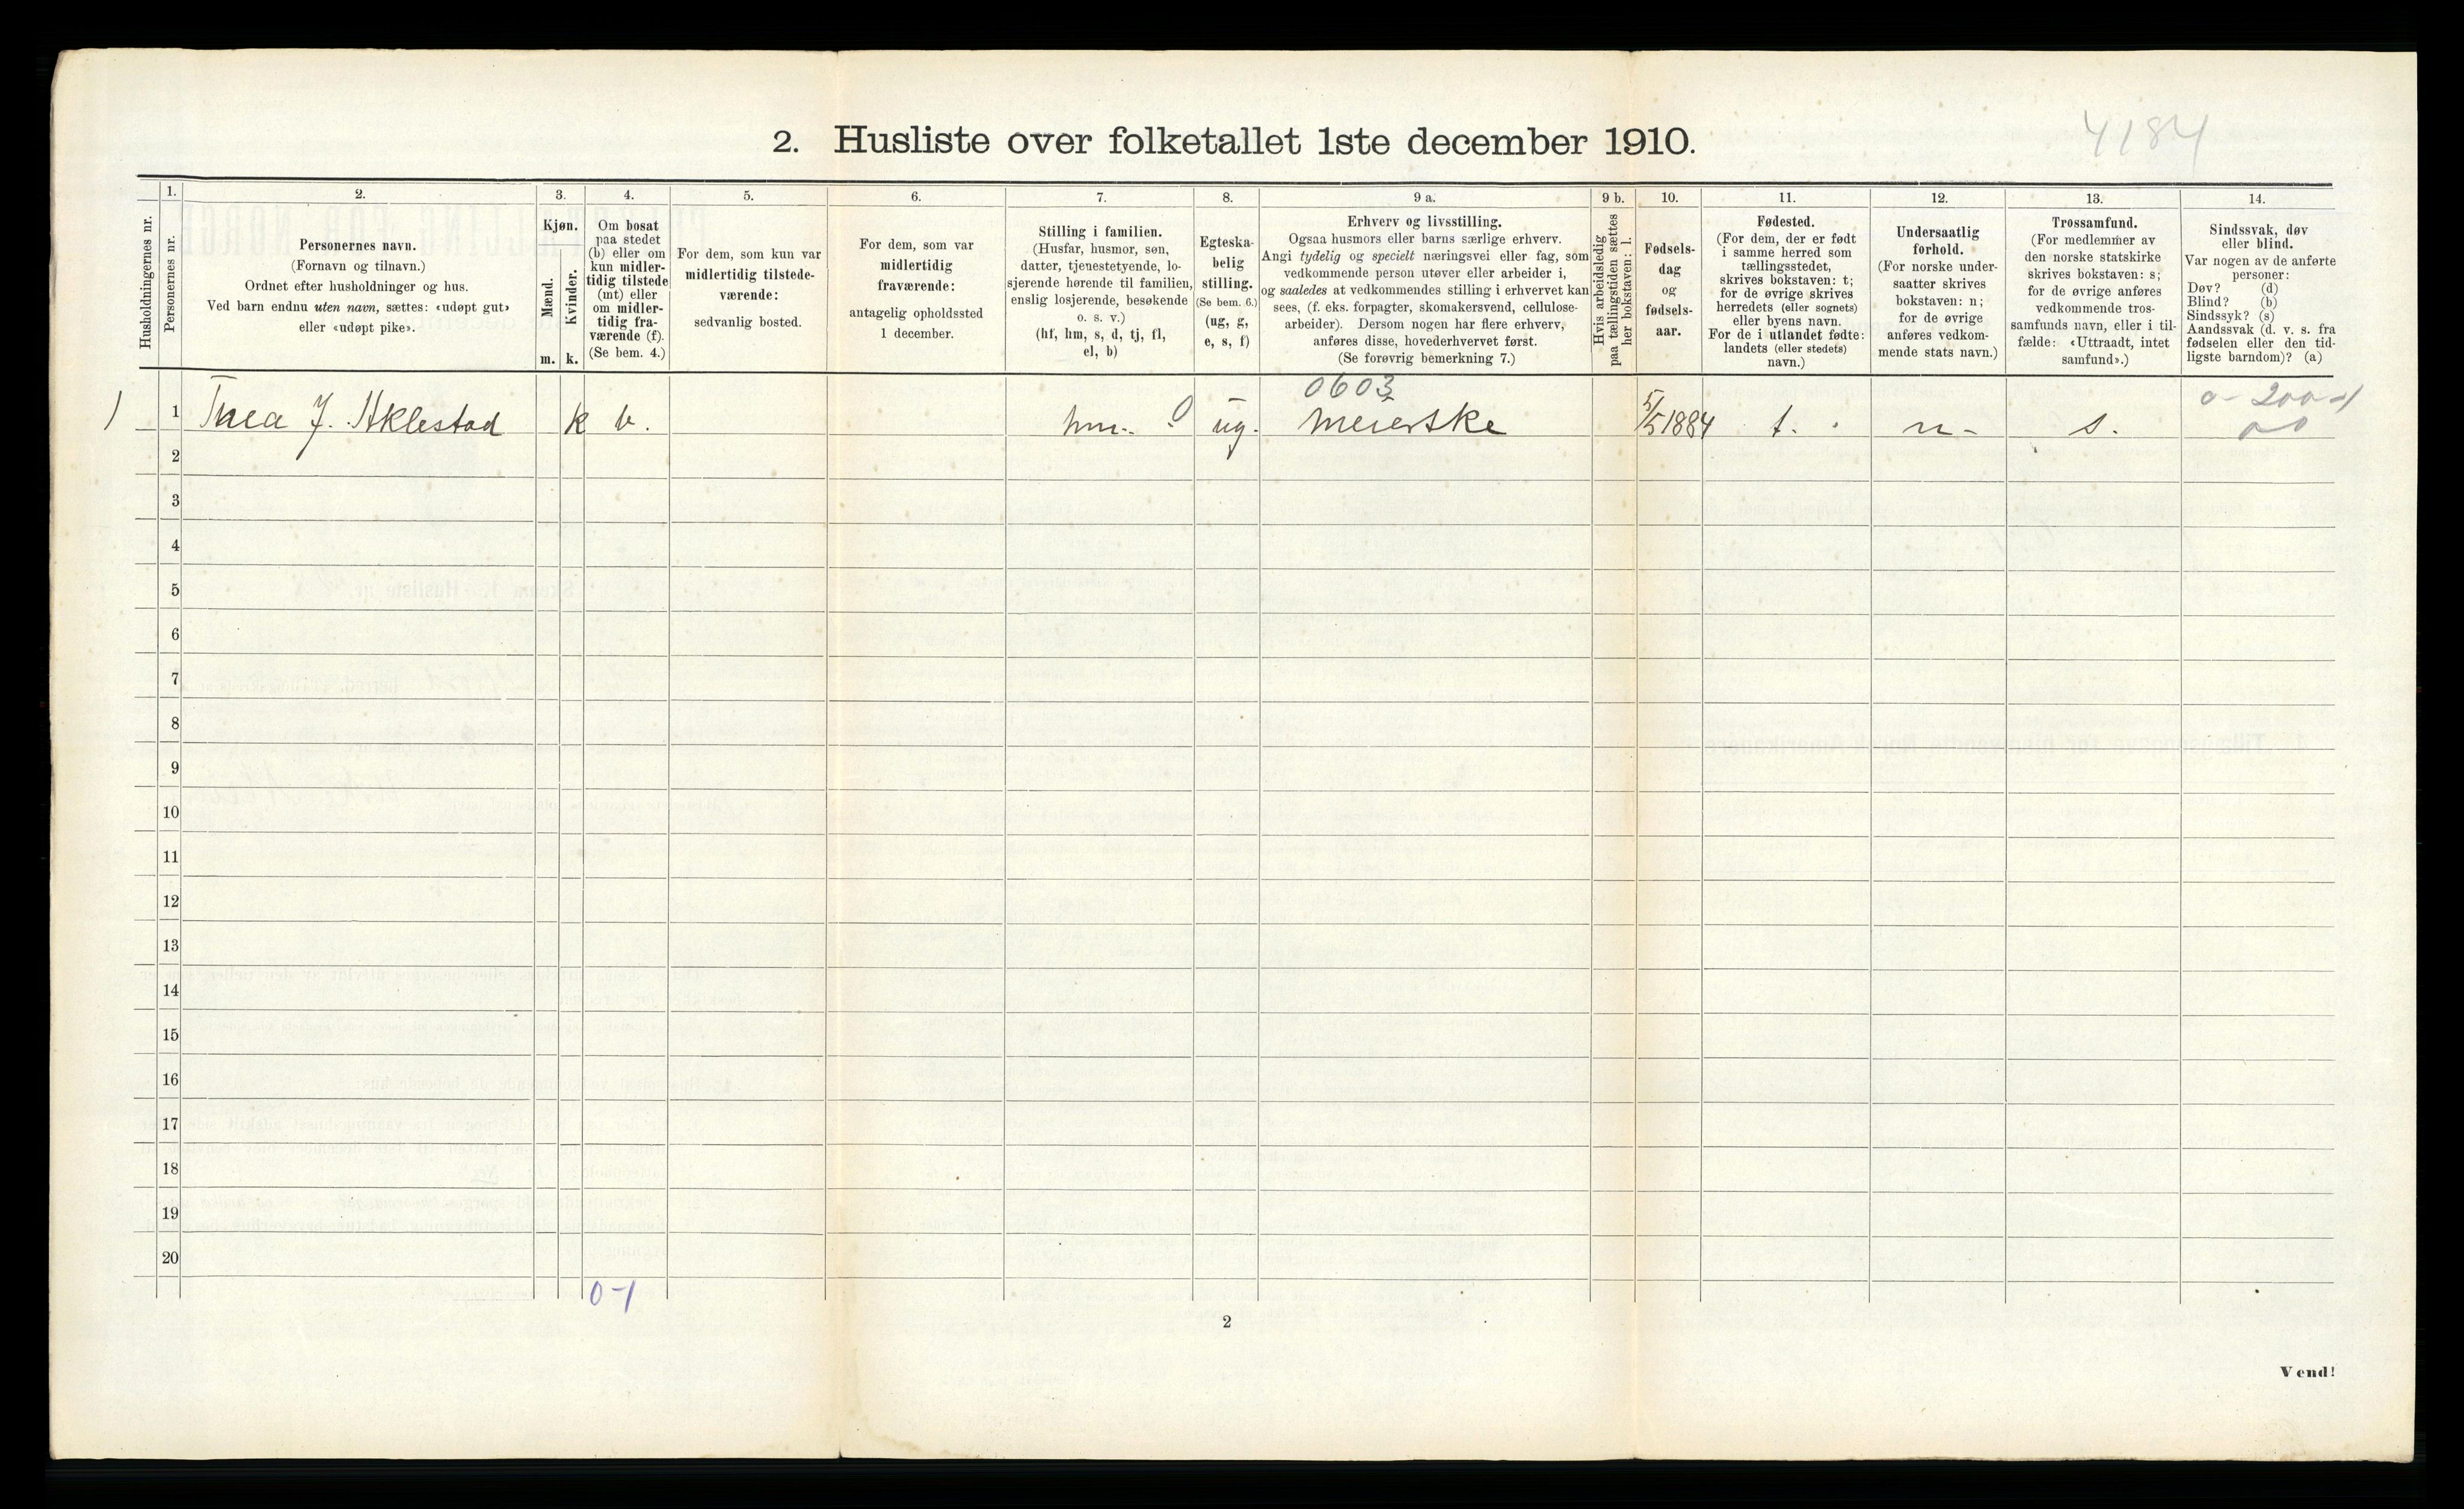 4184
2. Husliste over folketallet 1ste december 1910.
Husholdningernes nr.
1.
Personernes nr.
2.
Personernes navn.
(Fornavn og tilnavn.)
Ordnet efter husholdninger og hus.
Ved barn endnu uten navn, sættes: «udøpt gut»
eller «udøpt pike».
3.
Kjøn.
Mænd.
Kvinder.
m. k.
4.
Om bosat
paa stedet
(b) eller om
kun midler-
tidig tilstede
(mt) eller
om midler-
tidig fra-
værende (f).
(Se bem. 4.)
5.
For dem, som kun var
midlertidig tilstede-
værende:
sedvanlig bosted.
6.
For dem, som var
midlertidig
fraværende:
antagelig opholdssted
1 december.
7.
Stilling i familien.
(Husfar, husmor, søn,
datter, tjenestetyende, lo-
sjerende hørende til familien,
enslig losjerende, besøkende
o. s. v.)
(hf, hm, s, d, tj, fl,
el, b)
8.
Egteska-
belig
stilling.
(Se bem. 6.)
(ug, g,
e, s, f)
9 a.
Erhverv og livsstilling.
Ogsaa husmors eller barns særlige erhverv.
Angi tydelig og specielt næringsvei eller fag, som
vedkommende person utøver eller arbeider i,
og saaledes at vedkommendes stilling i erhvervet kan
sees, (f. eks. forpagter, skomakersvend, cellulose-
arbeider). Dersom nogen har flere erhverv,
anføres disse, hovederhvervet først.
(Se forøvrig bemerkning 7.)
9 b.
Hvis arbeidsledig
paa tællingstiden sættes
her bokstaven: l.
10.
Fødsels-
dag
og
fødsels-
aar.
11.
Fødested.
(For dem, der er født
i samme herred som
tællingsstedet,
skrives bokstaven: t;
for de øvrige skrives
herredets (eller sognets)
eller byens navn.
For de i utlandet fødte:
landets (eller stedets)
navn.)
12.
Undersaatlig
forhold.
(For norske under-
saatter skrives
bokstaven: n;
for de øvrige
anføres vedkom-
mende stats navn.)
13.
Trossamfund.
(For medlemmer av
den norske statskirke
skrives bokstaven: s;
for de øvrige anføres
vedkommende tros-
samfunds navn, eller i til-
fælde: «Uttraadt, intet
samfund».)
14.
Sindssvak, døv
eller blind.
Var nogen av de anførte
personer:
Døv? (d)
Blind? (b)
Sindssyk? (s)
Aandssvak (d. v. s. fra
fødselen eller den tid-
ligste barndom)? (a)
0603 0-200-1
1 1 Thea J. Aklestad k b. hm.. 0 ug. Meierske 5/5 1884 t. n- s. 00
2
3
4
5
6
7
8
9
10
11
12
13
14
15
16
17
18
19
20
0-1
2
Vend!